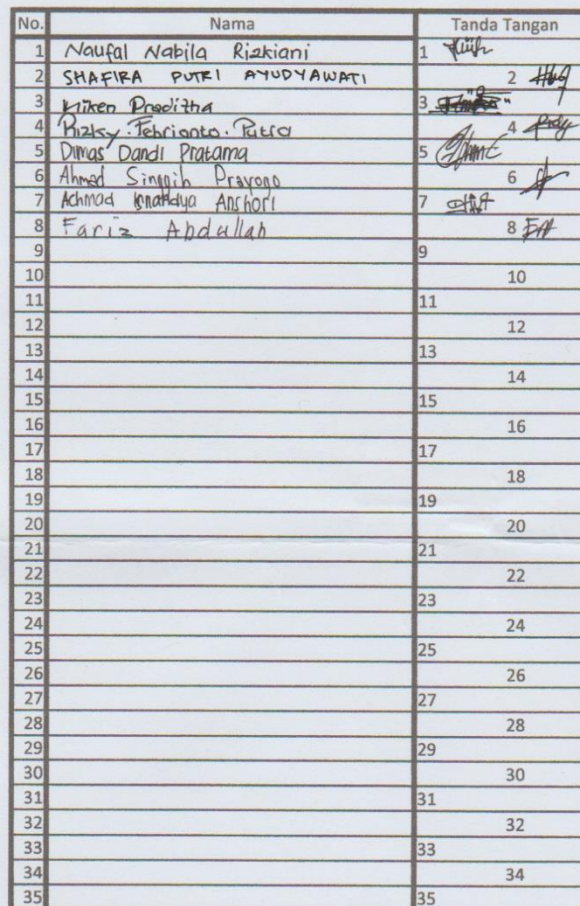 No. Nama Tanda Tangan
1 Naufal Nabila Rizkiani 1
2 SHAFIRA PUTRI AYUDYAWATI 2
3 Niken Praditha 3
4 Rizky. Febrianto. Putra 4
5 Dimas Dandi Pratama 5
6 Ahmad Singgih Prayono 6
7 Achmad Anshori 7
8 Fariz Abdullah 8
9 9
10 10
11 11
12 12
13 13
14 14
15 15
16 16
17 17
18 18
19 19
20 20
21 21
22 22
23 23
24 24
25 25
26 26
27 27
28 28
29 29
30 30
31 31
32 32
33 33
34 34
35 35